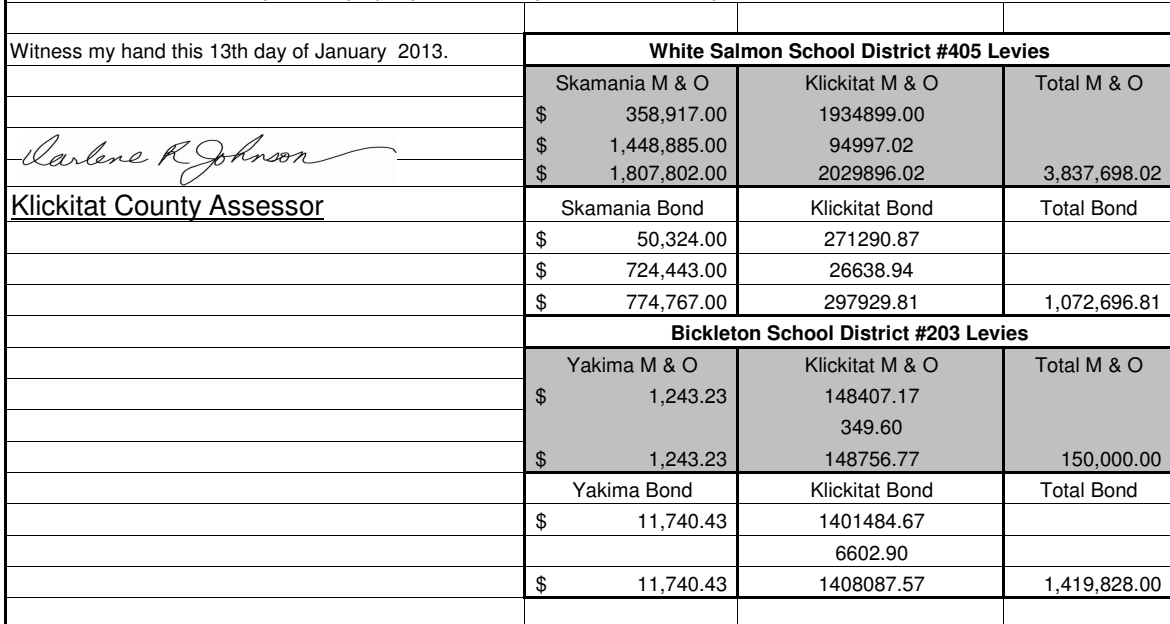 Witness my hand this 13th day of January  2013.
White Salmon School District #405 Levies
Skamania M & O Klickitat M & O Total M & O
$ 358,917.00 1934899.00
$ 1,448,885.00 94997.02
Darlene R Johnson
$ 1,807,802.00 2029896.02 3,837,698.02
Klickitat County Assessor
Skamania Bond Klickitat Bond Total Bond
$ 50,324.00 271290.87
$ 724,443.00 26638.94
$ 774,767.00 297929.81 1,072,696.81
Bickleton School District #203 Levies
Yakima M & O Klickitat M & O Total M & O
$ 1,243.23 148407.17
349.60
$ 1,243.23 148756.77 150,000.00
Yakima Bond Klickitat Bond Total Bond
$ 11,740.43 1401484.67
6602.90
$ 11,740.43 1408087.57 1,419,828.00